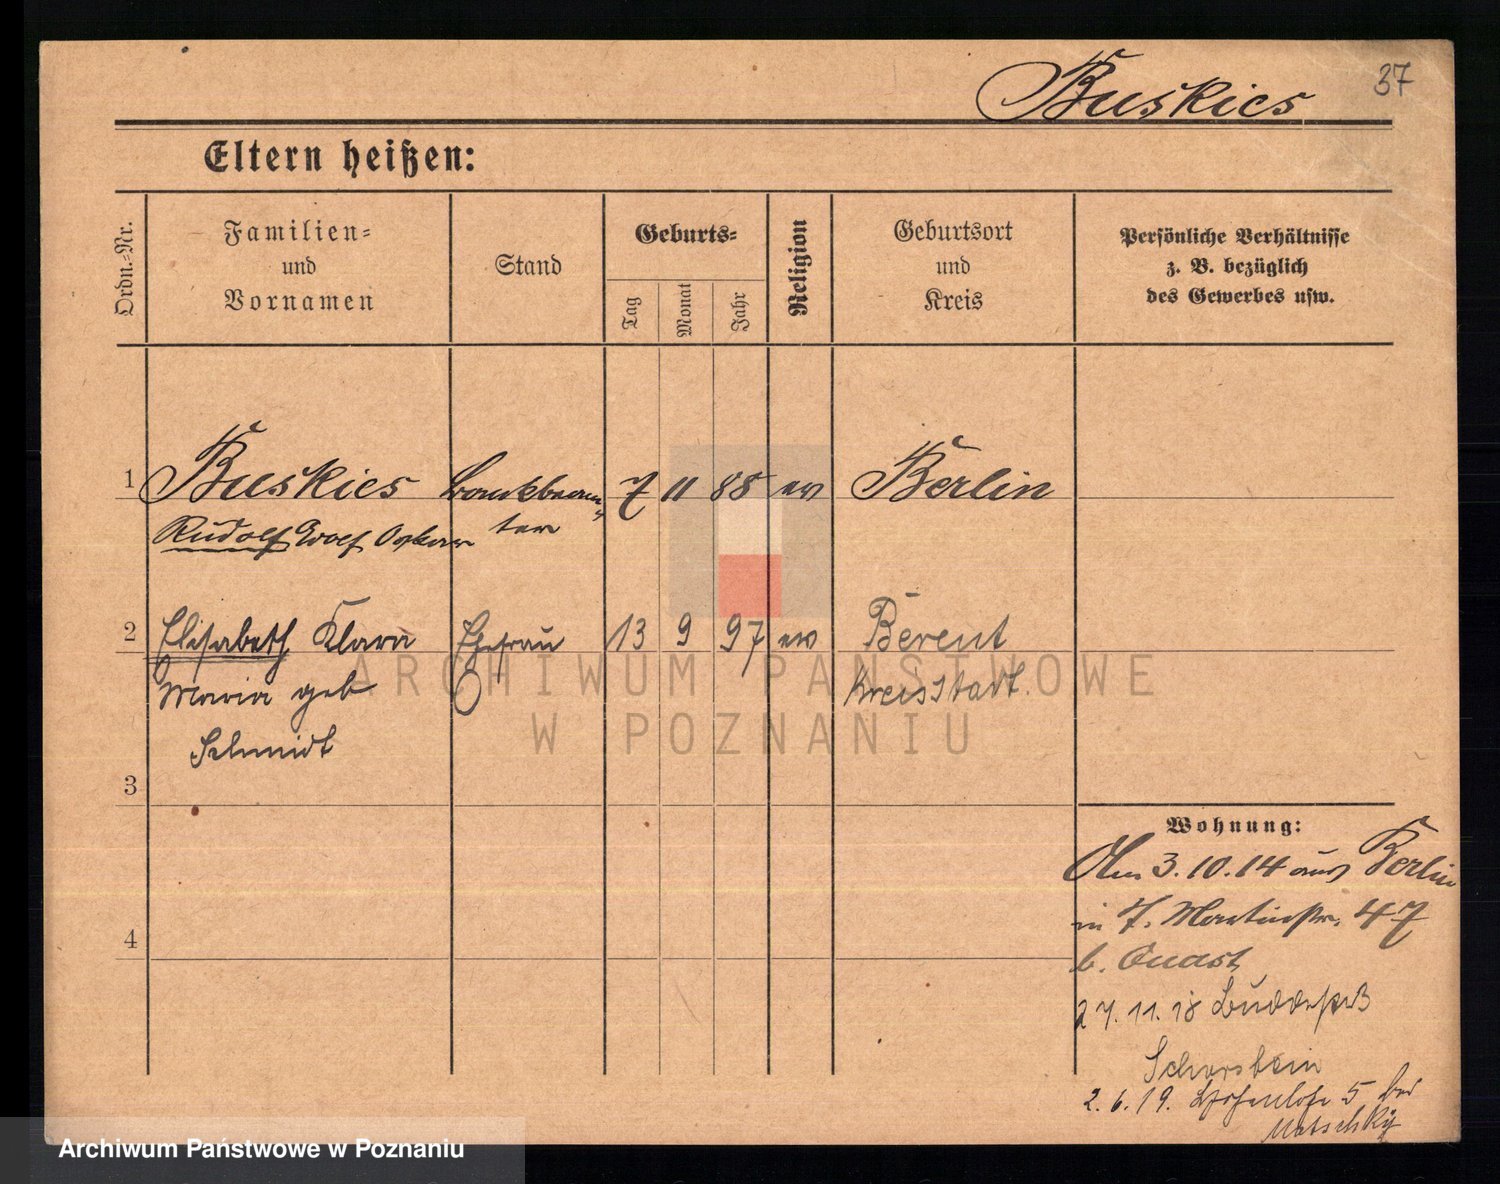 Buskies
37
Eltern heißen:
Ordn.-Nr.
Familien-
und
Vornamen
Stand
Geburts-
Tag
Monat
Jahr
Religion
Geburtsort
und
Kreis
Persönliche Verhältnisse
z. B. bezüglich
des Gewerbes usw.
1 Buskies Bankbeam- 7 11 88 ev Berlin
Rudolf Oskar ter
2 Elisabeth Klara Ehefrau 13 9 97 ev Berent
Maria geb Kreisstadt.
Schmidt
3
4
Wohnung:
Am 3.10.14 aus Berlin
in 7. Martinstr. 47
b. Quast
27.11.18
2.6.19. 5 bei
Matschky
ARCHIWUM PAŃSTWOWE
W POZNANIU
Archiwum Państwowe w Poznaniu